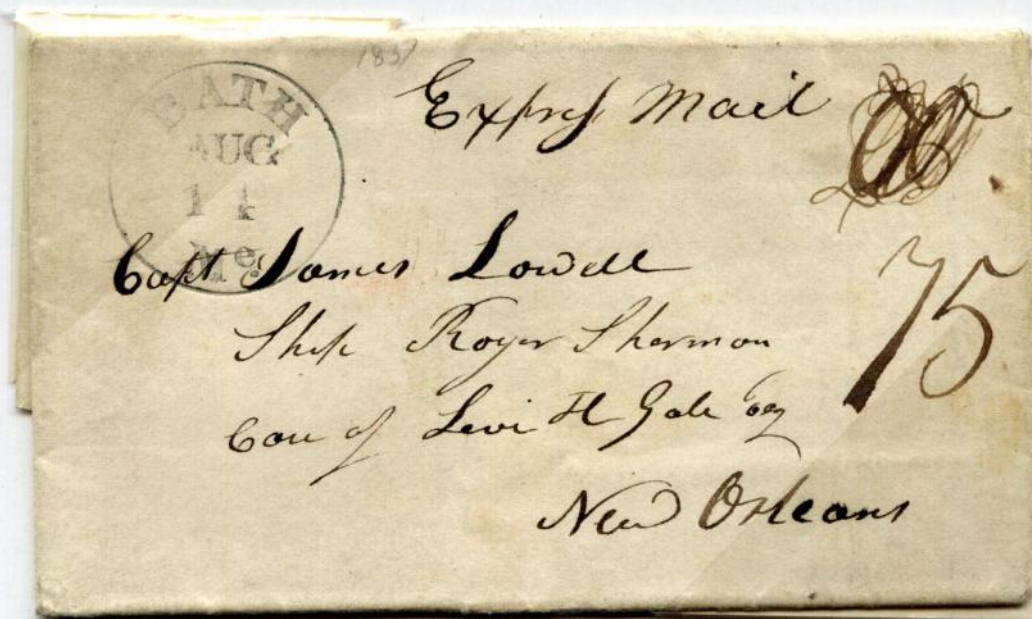 1837
BATH
AUG
14
Me
Express Mail
Capt James Lowell
Ship Roger Sherman
Care of Levi H Gale Esq
New Orleans
75